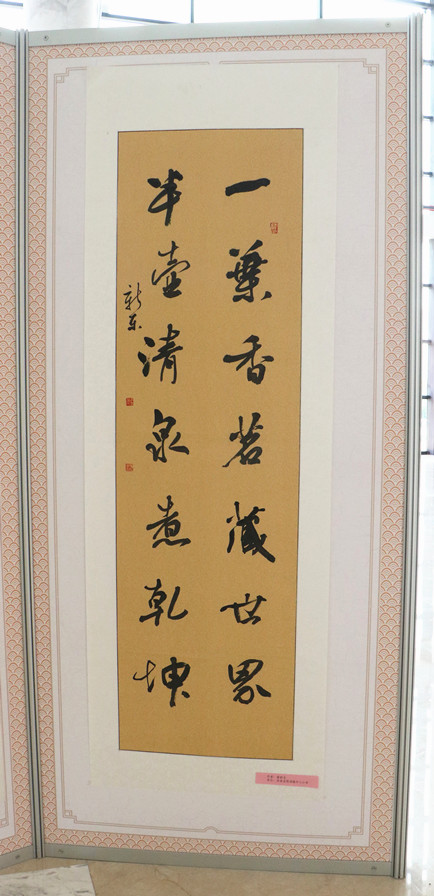 一葉香茗藏世界
半壺清泉煮乾坤
新东